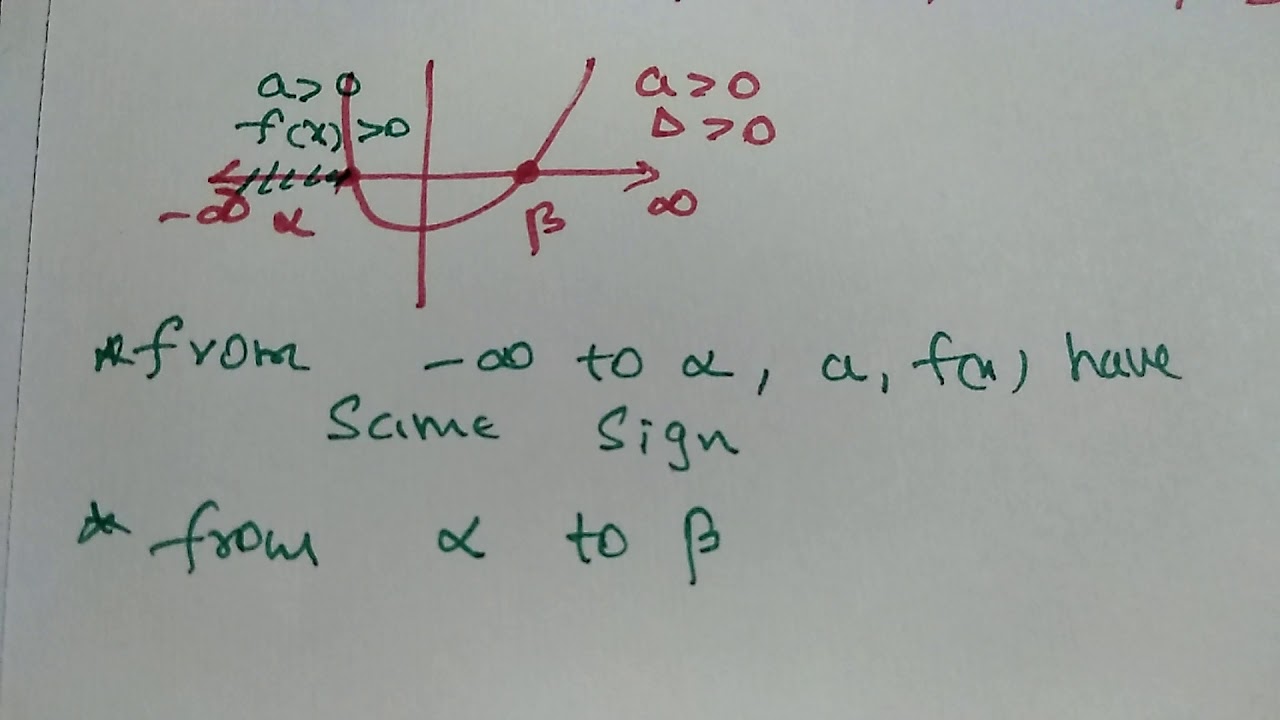 a>0 a>0
f(x)>0 Δ>0
-∞ α β ∞
*from -∞ to α, a, f(x) have
same sign
* from α to β